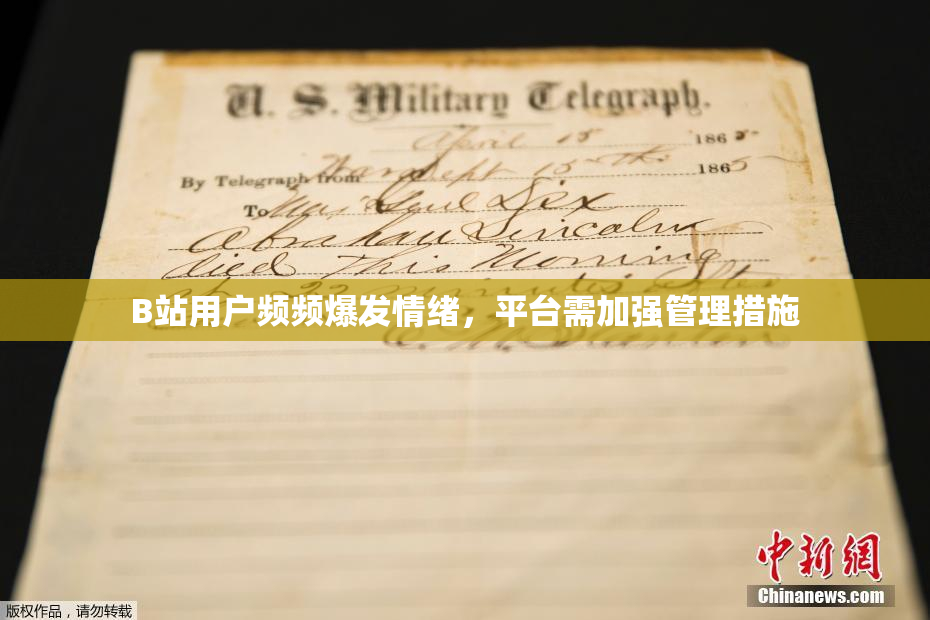 U. S. Military Telegraph.
April 15 1865
By Telegraph from War Dept 15th 1865
To Maj Genl Dix
Abraham Lincoln
died This Morning
at 22 minutes after
B站用户频频爆发情绪，平台需加强管理措施
E. M. Stanton
中新网
Chinanews.com
版权作品，请勿转载